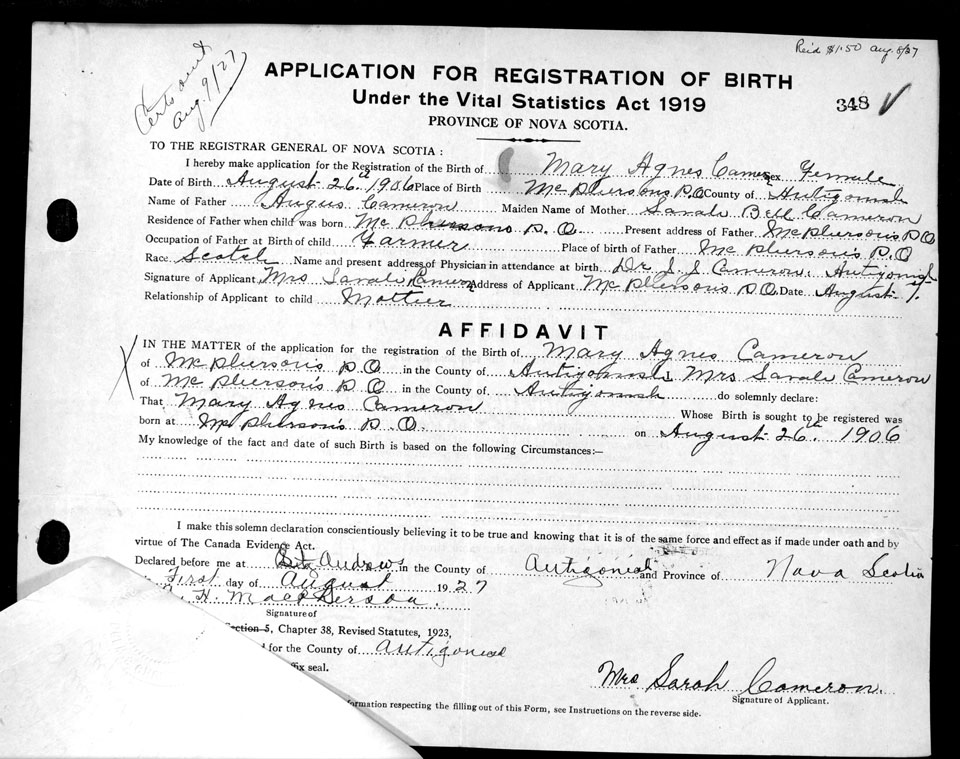 Certs out
Aug. 9/27
Reid $1.50 Aug. 8/27
APPLICATION FOR REGISTRATION OF BIRTH
Under the Vital Statistics Act 1919
PROVINCE OF NOVA SCOTIA.
348 ✓
TO THE REGISTRAR GENERAL OF NOVA SCOTIA :
I hereby make application for the Registration of the Birth of Mary Agnes Cameron Sex Female
Date of Birth August 26th 1906 Place of Birth McPhersons P.O County of Antigonish
Name of Father Angus Cameron Maiden Name of Mother Sarah Bell Cameron
Residence of Father when child was born McPhersons P.O. Present address of Father McPherson's P.O
Occupation of Father at Birth of child Farmer Place of birth of Father McPherson's P.O
Race. Scotch Name and present address of Physician in attendance at birth Dr. J. J Cameron. Antigonish
Signature of Applicant Mrs Sarah Cameron Address of Applicant McPherson's P.O. Date August 1st.
Relationship of Applicant to child Mother
AFFIDAVIT
X IN THE MATTER of the application for the registration of the Birth of Mary Agnes Cameron
of McPherson's P.O in the County of Antigonish I, Mrs Sarah Cameron
of McPherson's P.O in the County of Antigonish do solemnly declare:
That Mary Agnes Cameron Whose Birth is sought to be registered was
born at McPherson's P.O. on August 26th 1906
My knowledge of the fact and date of such Birth is based on the following Circumstances:—
I make this solemn declaration conscientiously believing it to be true and knowing that it is of the same force and effect as if made under oath and by
virtue of The Canada Evidence Act.
Declared before me at St Andrews in the County of Antigonish and Province of Nova Scotia
First day of August 1927
H. MacPherson.
Signature of
Section 5, Chapter 38, Revised Statutes, 1923,
for the County of Antigonish
ffix seal.
Mrs Sarah Cameron.
Signature of Applicant.
formation respecting the filling out of this Form, see Instructions on the reverse side.